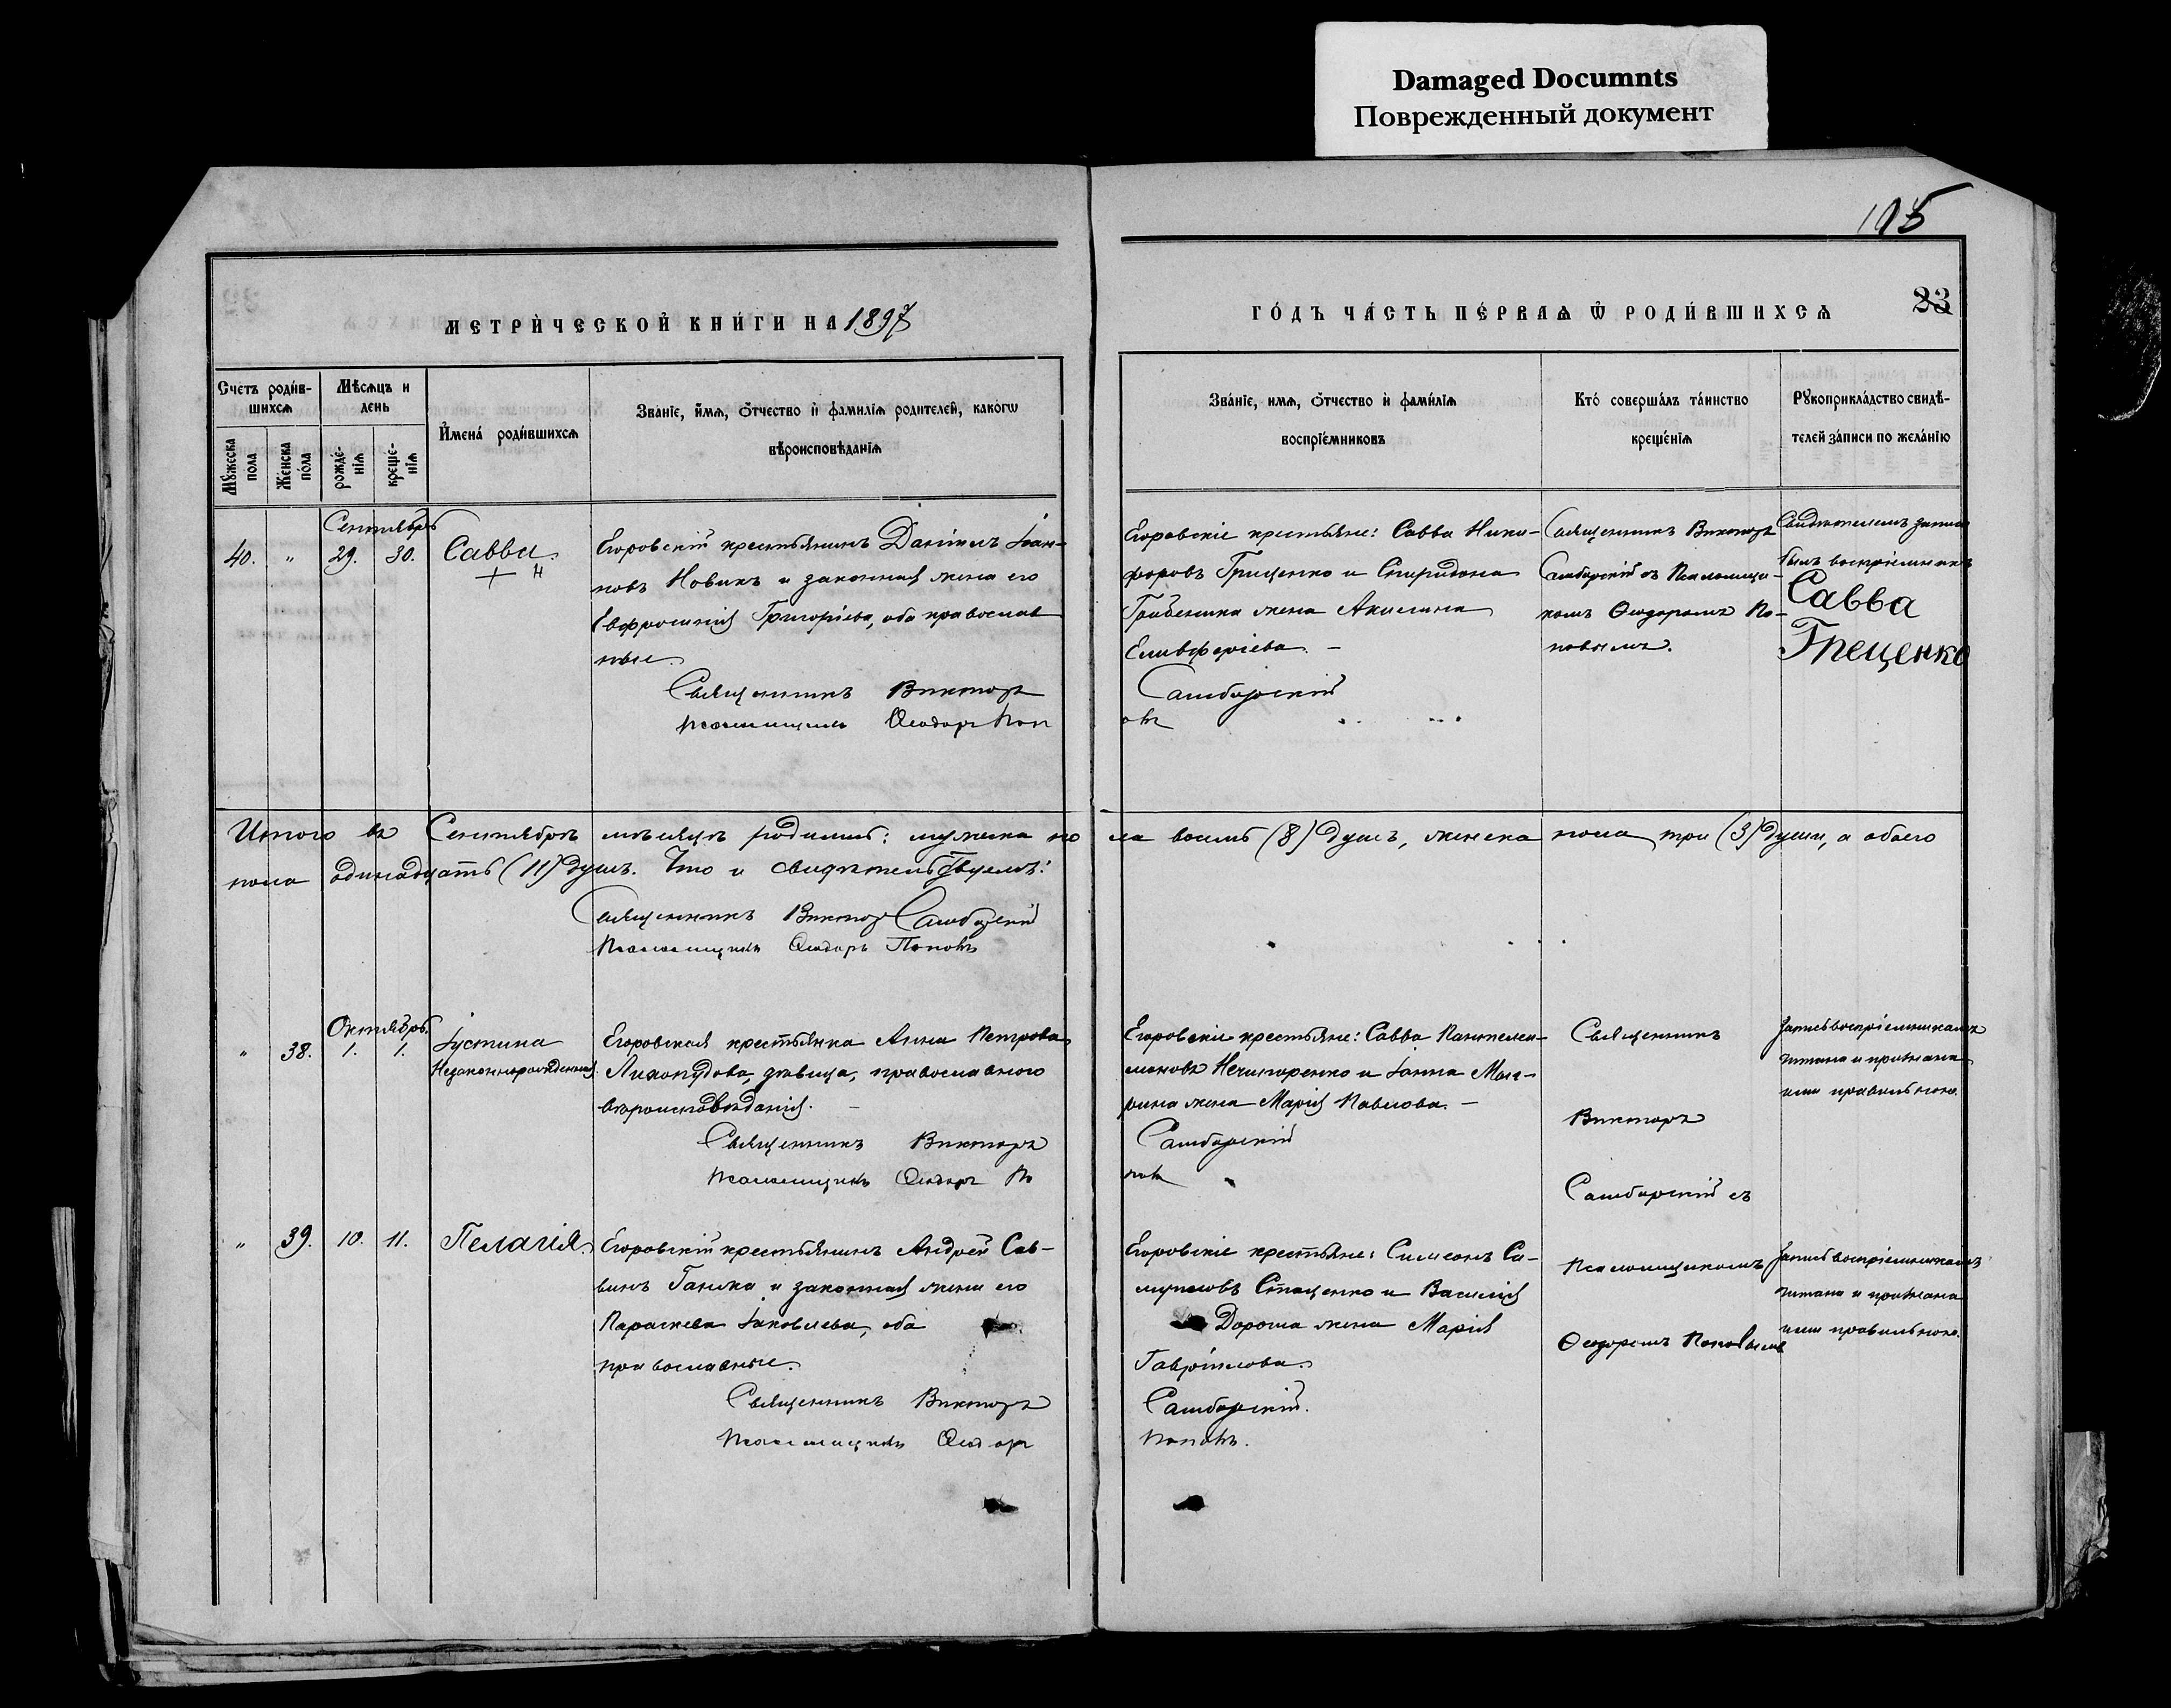 Damaged Documnts
Поврежденный документ
105
МЕТРИ́ЧЕСКОЙ КНИ́ГИ НА 1897
ГО́ДЪ ЧА́СТЬ ПЕ́РВАѦ Ѡ҆ РОДИ́ВШИХСѦ
23
Счетъ роди́в-
шихсѧ
Мѣ́сѧцъ и
день
И҆мена́ роди́вшихсѧ
Зва́нїе, и҆́мѧ, ѻ҆́тчество и҆ фамилїѧ родителей, како́гѡ
вѣроисповѣ́данїѧ
Мꙋжеска
пола
Же́нска
по́ла
рожде́-
нїѧ
креще́-
нїѧ
Зва́нїе, имѧ, ѻ҆́тчество и҆ фами́лїѧ
воспрїе́мниковъ
Кто́ соверша́лъ та́инство
креще́нїѧ
Рꙋкоприкла́дство свидѣ́-
телей за́писи по жела́нїю
Сентябрь
40. " 29. 30. Савва
Егоровскій крестьянинъ Даніилъ Іоан-
новъ Новикъ и законная жена его
Евфросинія Григоріева, оба православ
ные.
Священникъ Викторъ
Псаломщикъ Ѳеодоръ Поп
Егоровскіе крестьяне: Савва Ники-
форовъ Грищенко и Спиридона
жена Акилина
Елевферіева. –
Самборскій
овъ
Священникъ Викторъ
Самборскій съ Псаломщи-
комъ Ѳеодоромъ По-
повымъ.
Свидѣтелемъ записи
былъ воспріемникъ
Савва
Грещенко
Итого въ Сентябрѣ мѣсяцѣ родилось: мужеска по ла восемь (8) душъ, женска пола три (3) души, а обоего
пола одинадцать (11) душъ. Что и свидѣтельствуемъ:
Священникъ Викторъ Самборскій
Псаломщикъ Ѳеодоръ Поповъ
Октябрь.
" 38. 1. 1. Іустина
Незаконнорожденная.
Егоровская крестьянка Анна Петрова
дѣвица, православнаго
вѣроисповѣданія. –
Священникъ Викторъ
Псаломщикъ Ѳеодоръ По
Егоровскіе крестьяне: Савва Пантелеи-
моновъ Нечипоренко и Іоанна
жена Марія Павлова. –
Самборскій
повъ
Священникъ
Викторъ
Самборскій съ
Запись воспріемникамъ
читана и признана
ими правильною.
" 39. 10. 11. Пелагія.
Егоровскій крестьянинъ Андрей Сав-
винъ Ганжа и законная жена его
Параскева Іаковлева, оба
православные.
Священникъ Викторъ
Псаломщикъ Ѳеодоръ
Егоровскіе крестьяне: Симеонъ Са-
муиловъ Стаценко и Василія
Дороша жена Марія
Гавріилова.
Самборскій.
Поповъ.
Псаломщикомъ
Ѳеодоромъ Поповымъ
Запись воспріемникамъ
читана и признана
ими правильною.